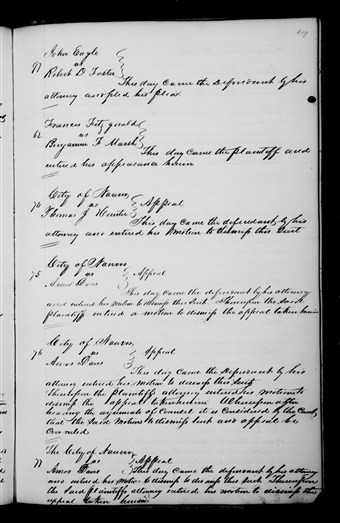 419
John Eagle
77 vs
Robert D Foster
This day came the Defendant by his
attorney and filed his plea
Francis Fitzgerald
62 vs
Benjamin F Marsh
This day came the plaintiff and
entered his appearance herein
City of Nauvoo
74 vs Appeal
Thomas J Hunter
This day came the defendant by his
attorney and entered his motion to dismiss this suit
City of Nauvoo
75 vs Appeal
Amos Davis
This day came the defendant by his attorney
and entered his motion to dismiss this suit Thereupon the said
plaintiff entered a motion to dismiss the appeal taken herein
City of Nauvoo
76 vs Appeal
Amos Davis
This day came the Defendant by his
attorney entered his motion to dismiss this suit
Thereupon the plaintiffs attorney entered his motion to
dismiss the appeal taken herein Whereupon after
hearing the arguments of Counsel it is Considered by the Court
that the said motions to dismiss suit and appeal be
overruled
The City of Nauvoo
77 vs Appeal
Amos Davis This day came the defendant by his attorney
and entered his motion to dismiss this suit Thereupon
the said plaintiffs attorney entered his motion to dismiss the
appeal taken herein